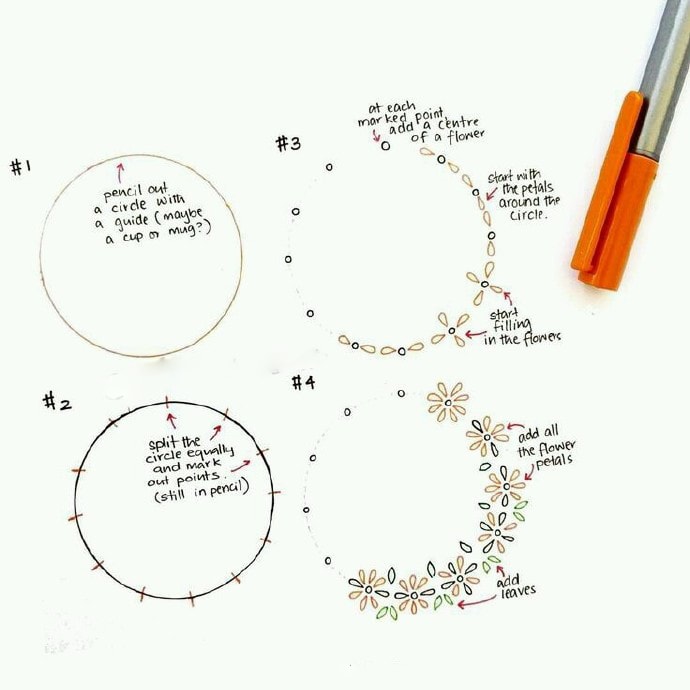 #1
pencil out
a circle with
a guide (maybe
a cup or mug?)
#2
split the
circle equally
and mark
out points.
(still in pencil)
#3
at each
marked point,
add a centre
of a flower
start with
the petals
around the
circle.
start
filling
in the flowers
#4
add all
the flower
petals
add
leaves